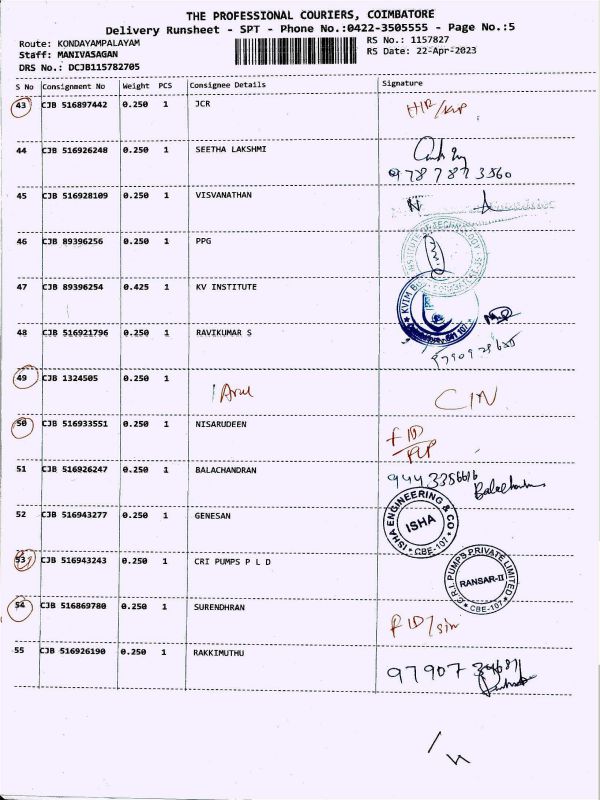 THE PROFESSIONAL COURIERS, COIMBATORE
Delivery Runsheet - SPT - Phone No.:0422-3505555 - Page No.:5
Route: KONDAYAMPALAYAM RS No.: 1157827
Staff: MANIVASAGAN RS Date: 22-Apr-2023
DRS No.: DCJB115782705
S No Consignment No Weight PCS Consignee Details Signature
43 CJB 516897442 0.250 1 JCR
44 CJB 516926248 0.250 1 SEETHA LAKSHMI
9787873560
45 CJB 516928109 0.250 1 VISVANATHAN
46 CJB 89396256 0.250 1 PPG
INSTITUTE OF TECHNOLOGY
47 CJB 89396254 0.425 1 KV INSTITUTE
48 CJB 516921796 0.250 1 RAVIKUMAR S
49 CJB 1324505 0.250 1
Arul CIN
50 CJB 516933551 0.250 1 NISARUDEEN
51 CJB 516926247 0.250 1 BALACHANDRAN
52 CJB 516943277 0.250 1 GENESAN
ISHA ENGINEERING & CO
ISHA
CBE-107
53 CJB 516943243 0.250 1 CRI PUMPS P L D
C.R.I. PUMPS PRIVATE LIMITED
RANSAR-II
CBE-107
54 CJB 516869780 0.250 1 SURENDHRAN
55 CJB 516926190 0.250 1 RAKKIMUTHU
97907